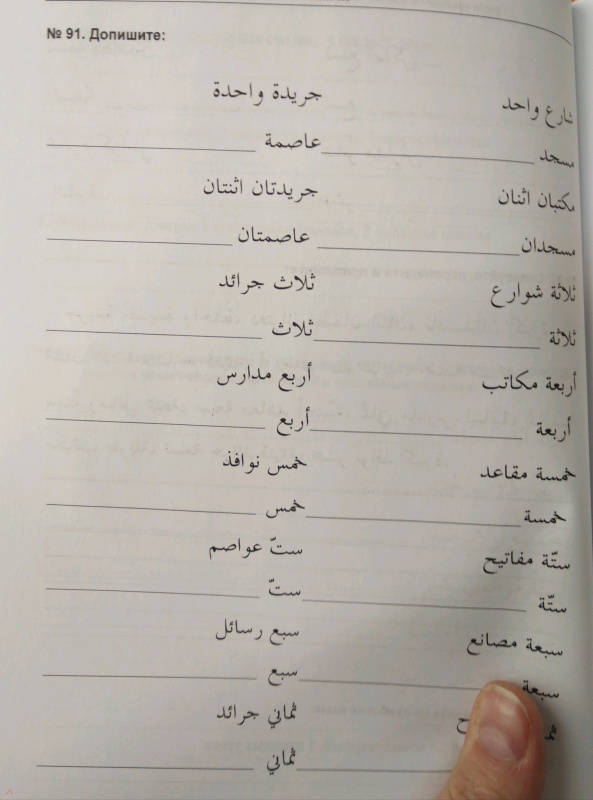 № 91. Допишите:
شارع واحد جريدة واحدة
مسجد عاصمة
مكتبان اثنان جريدتان اثنتان
مسجدان عاصمتان
ثلاثة شوارع ثلاث جرائد
ثلاثة ثلاث
أربعة مكاتب أربع مدارس
أربعة أربع
خمسة مقاعد خمس نوافذ
خمسة خمس
ستّة مفاتيح ستّ عواصم
ستّة ستّ
سبعة مصانع سبع رسائل
سبعة سبع
ثماني جرائد
ثماني